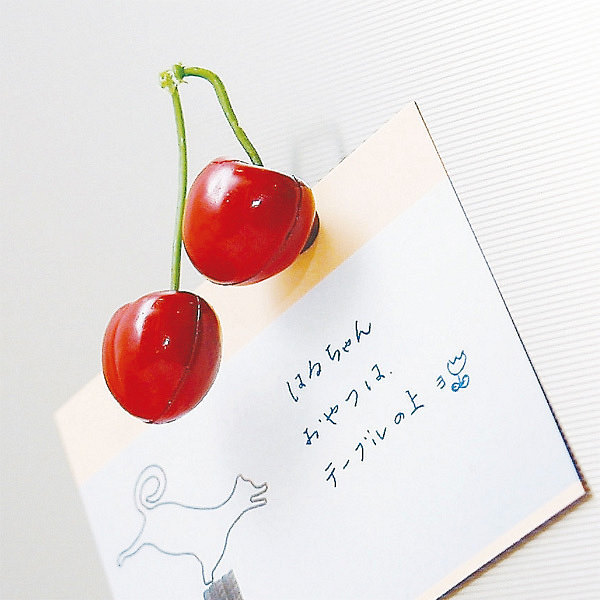 はるちゃん
おやつは、
テーブルの上ヨ